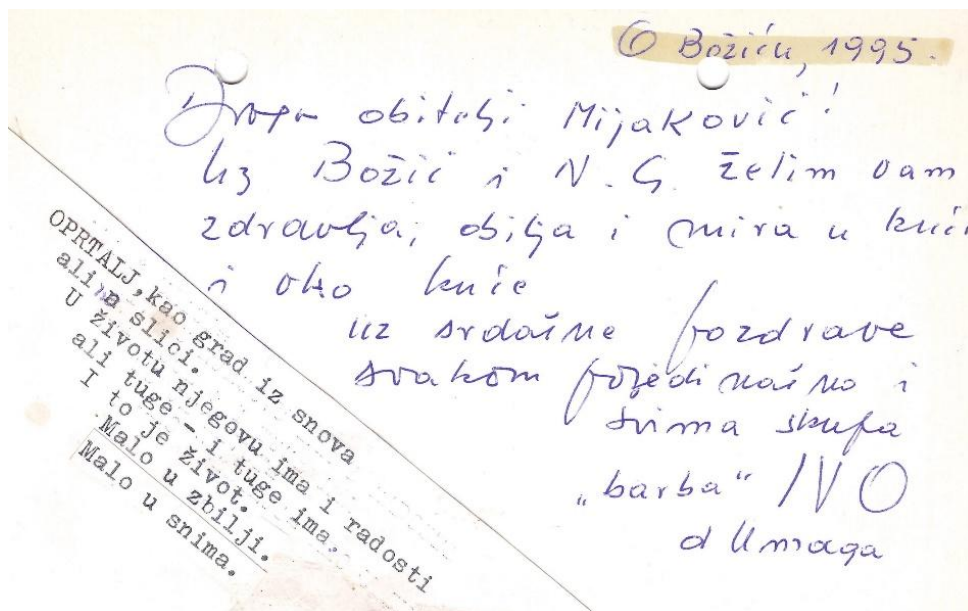 O Božiću, 1995.
Draga obitelji Mijaković!
Uz Božić i N. G. želim vam
zdravlja, obilja i mira u kući
i oko kuće
uz srdačne pozdrave
svakom pojedinačno i
svima skupa
„barba“ IVO
d Umaga
OPRTALJ, kao grad iz snova
ali na slici.
U životu njegovu ima i radosti
ali tuge - i tuge ima.
I to je život.
Malo u zbilji.
Malo u snima.